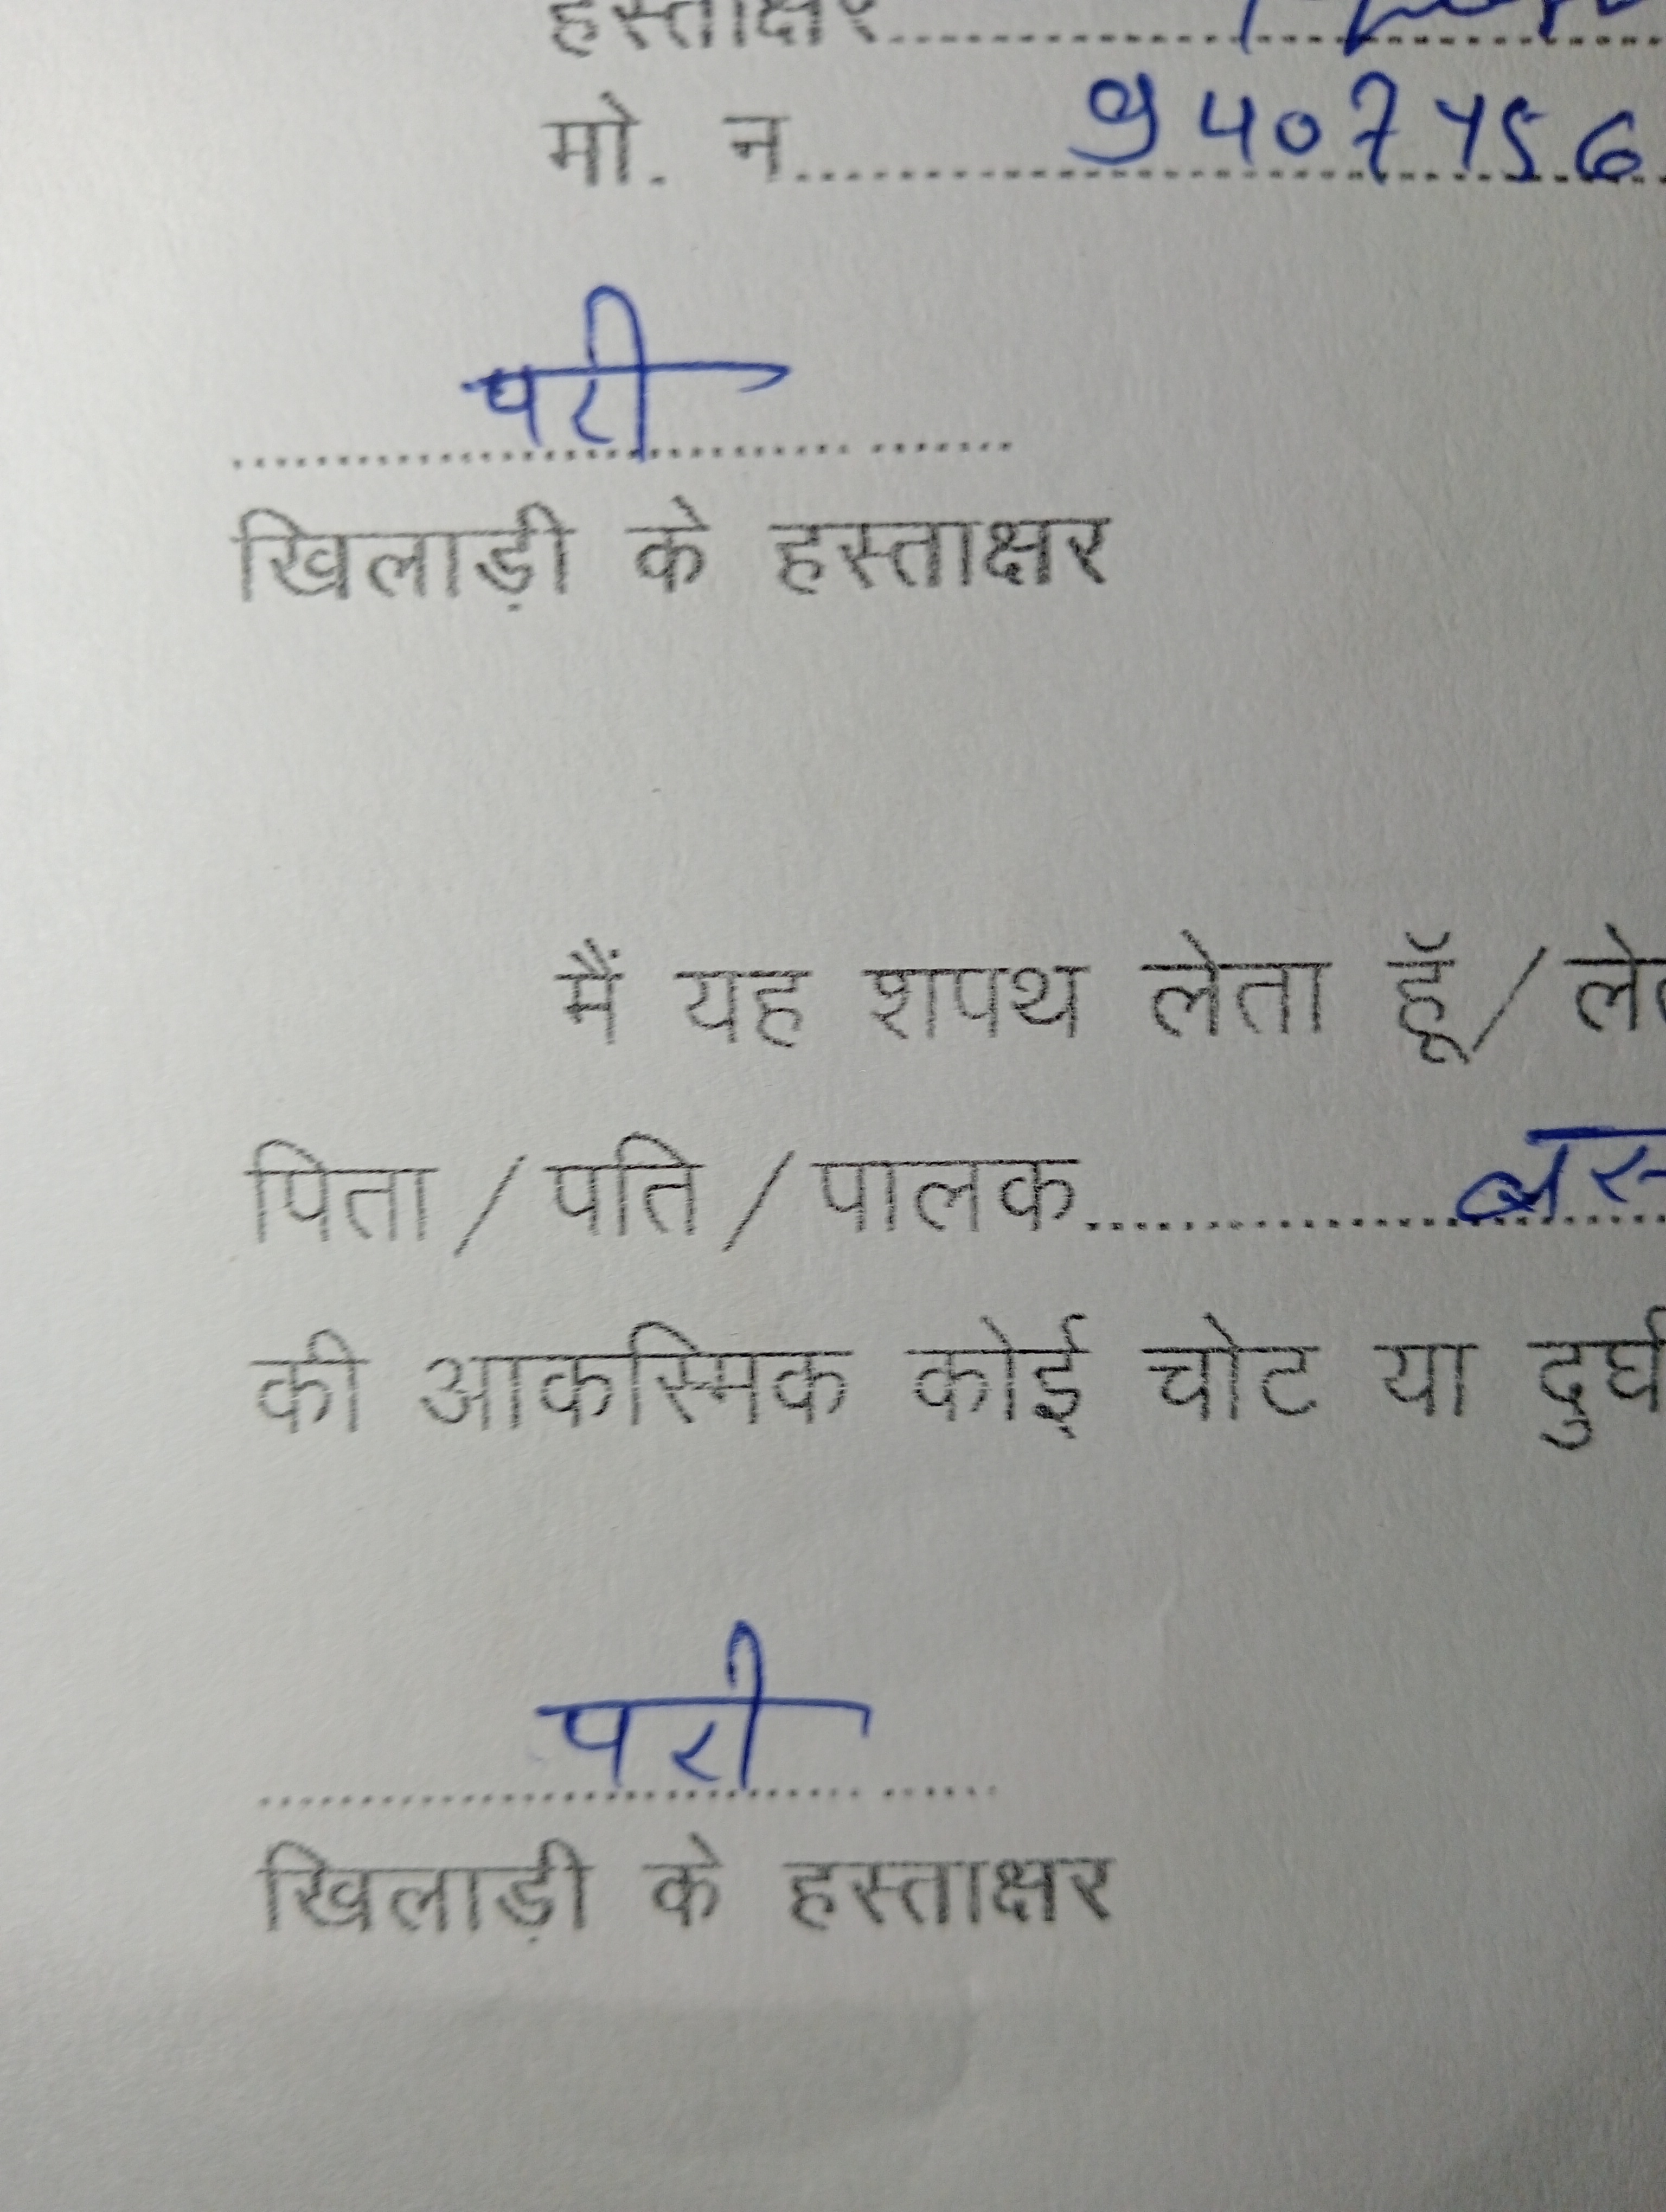 हस्ताक्षर........................
मो. न........................9407456
परी
खिलाड़ी के हस्ताक्षर
मैं यह शपथ लेता हूॅ/
पिता/पति/पालक........................
की आकस्मिक कोई चोट या
परी
खिलाड़ी के हस्ताक्षर